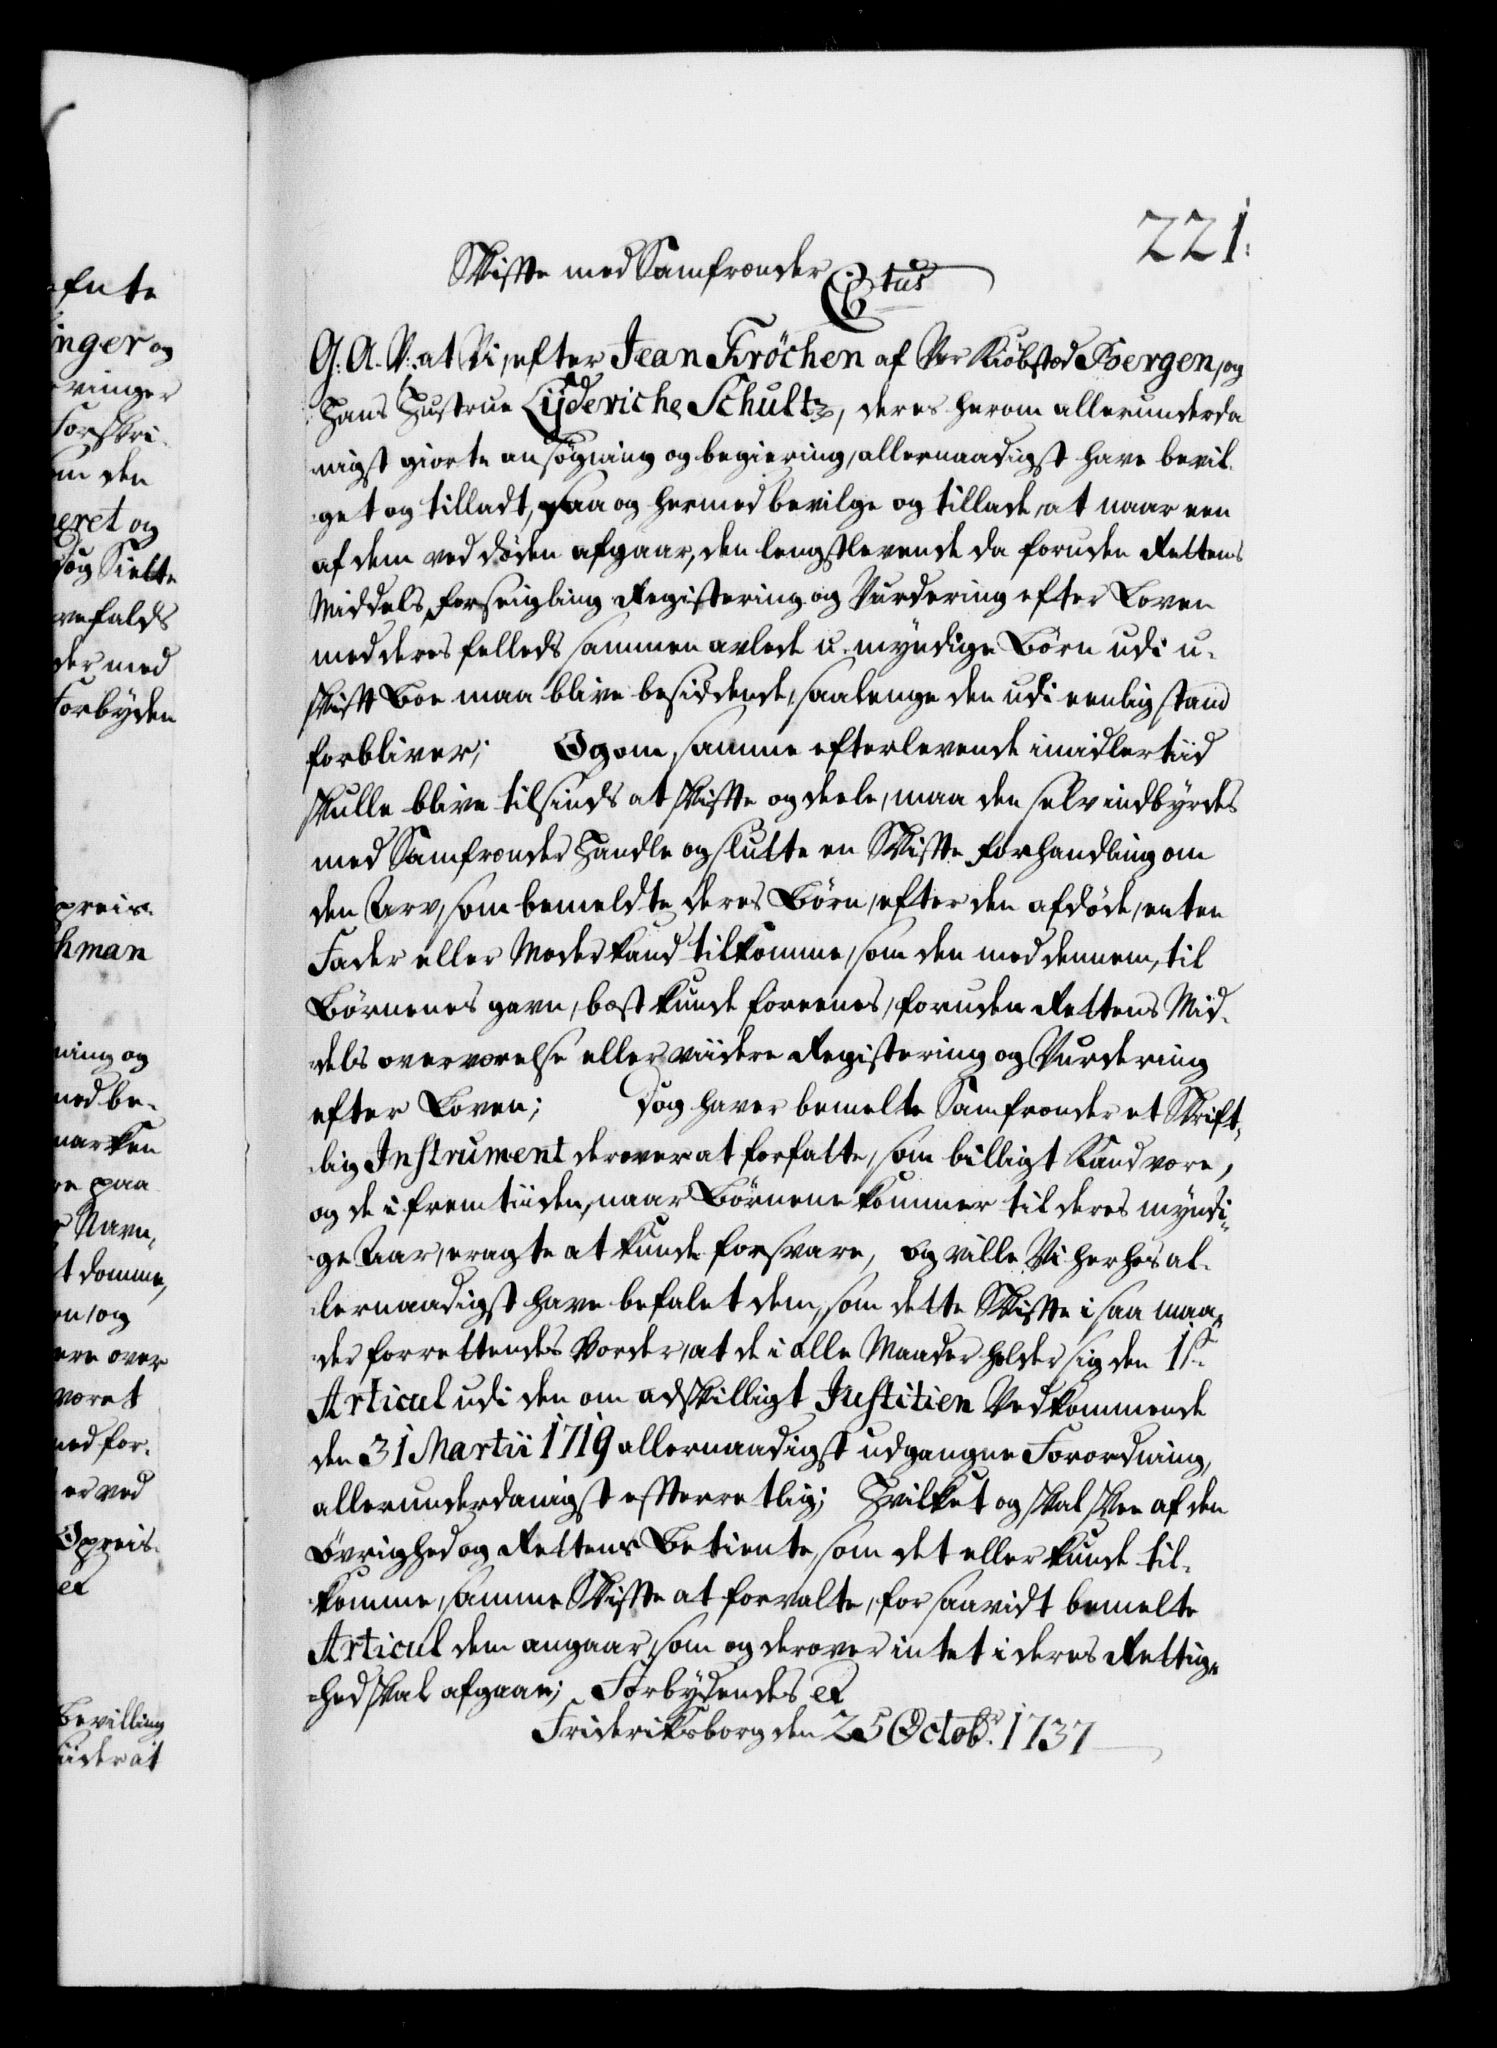 221.
Skifte med Samfrænder
C 6tus
G: A. V: at Vi, efter Jean Kröchen af Vor Kiöbstæd Bergen, og
Hans Hustrue Lyderiche Schultz, deres herom allerunderda
nigst giorte ansøgning og begiering, allernaadigst have bevil-
get og tilladt, saa og hermed bevilge og tillade, at naar een
af dem ved døden afgaar, den lengstlevende da foruden Rettens
Middels forseigling Registering og Vurdering efter Loven
med deres felleds sammen avlede u-myndige Børn udi u-
skift Boe maa blive besiddende, saalenge den udi eenlig stand
forbliver; Og om samme efterlevende imidlertiid
skulle blive tilsinds at skifte og deele, maa den selv indbyrdes
med Samfrænder Handle og slutte en Skifte forhandling om
den Arv, som bemeldte deres Børn, efter den afdøde, enten
Fader eller Moder kand tilkomme, som den med dennem, til
Børnenes gavn, best kunde foreenes, foruden Rettens Mid-
dels overværelse eller viidere Registering og Vurdering
efter Loven; Dog haver bemelte Samfrænder et Skrift-
lig Instrument derover at forfatte, som billigt kand være,
og de i fremtiiden, naar Børnene kommer til deres myndi-
ge Aar, eragte at kunde forsvare, og ville Vi herhos al-
lernaadigst have befalet dem, som dette Skifte i saa maa-
der forrettendes Vorder, at de i alle Maader holder sig den 1ste
Articul udi den om adskilligt Justitien Vedkommende
den 31 Martii 1719 allernaadigst udgangne Forordning,
allerunderdanigst efterretlig; Hvilket og skal skee af den
Øvrighed og Rettens Betiente, som det eller kunde til-
komme, samme Skifte at forvalte, for saavidt bemelte
Articul dem angaar, som og derover intet i deres Rettig-
hed skal afgaae; Forbydendes et
Frideriksborg den 25 Octobr. 1737